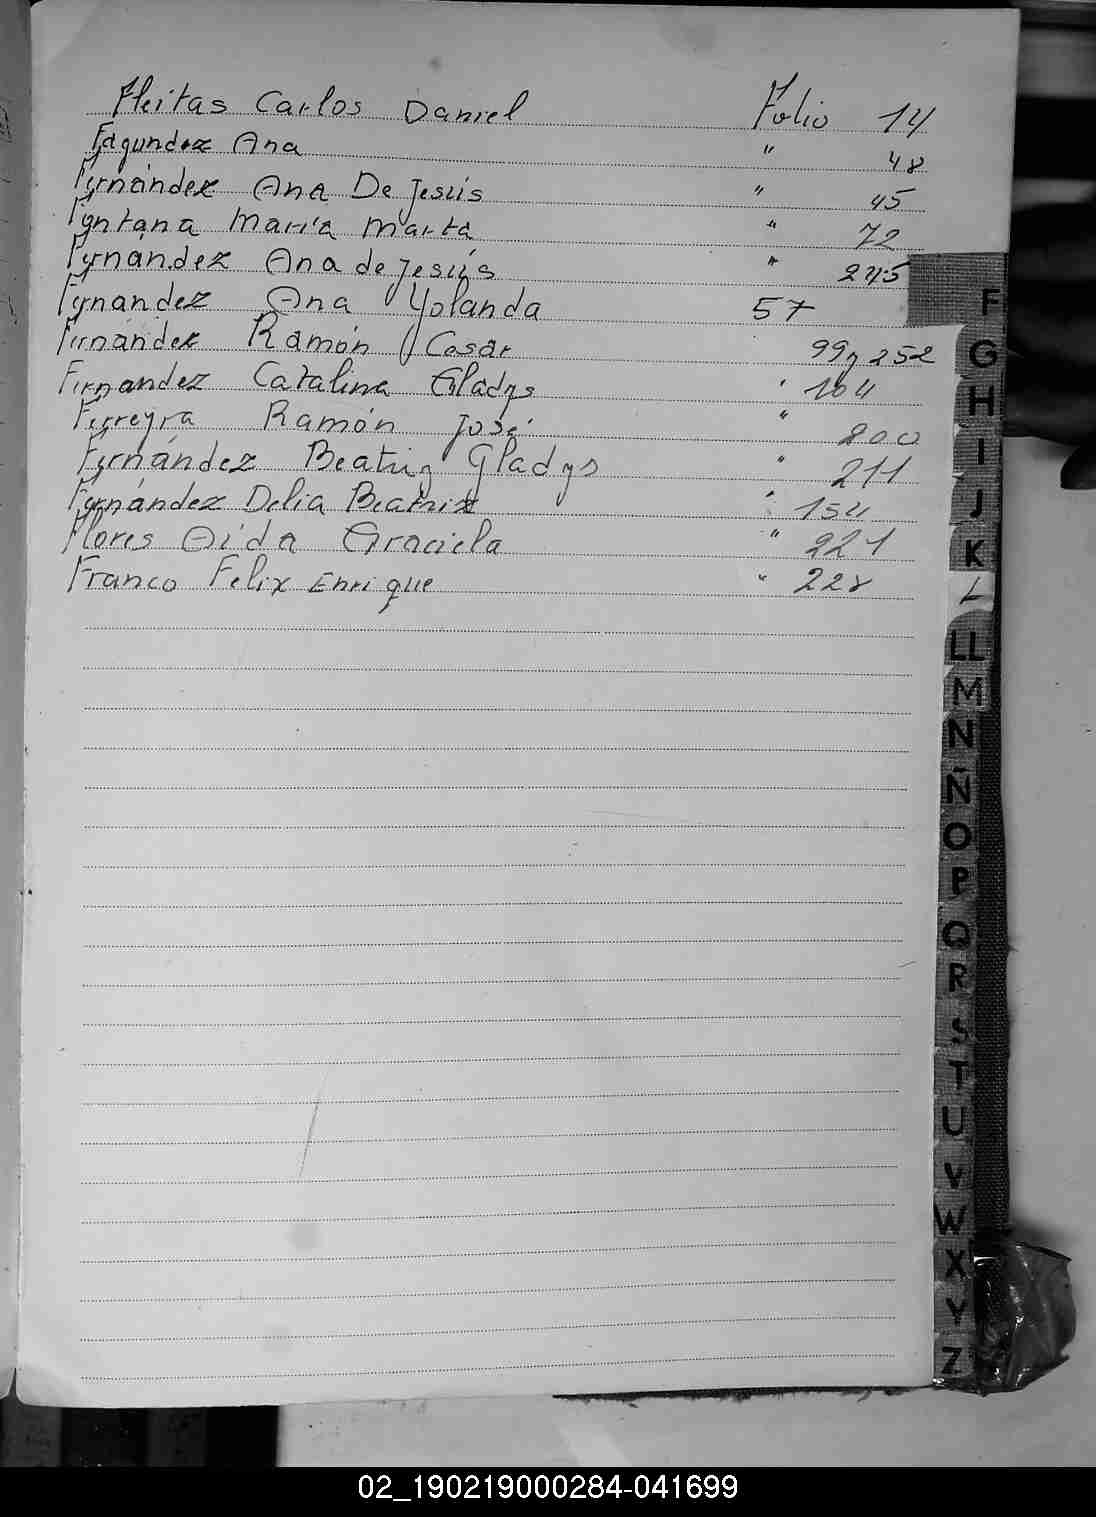 Fleitas Carlos Daniel Folio 14
Fagundez Ana " 48
Fernández Ana De Jesús " 45
Fontana María Marta " 72
Fernandez Ana de Jesús " 245
Fernandez Ana Yolanda 57
Fernández Ramón Cesar 99y252
Fernandez Catalina Gladys " 104
Ferreyra Ramón José " 200
Fernández Beatriz Gladys " 211
Fernández Delia Beatriz " 154
Flores Aida Graciela " 221
Franco Felix Enrique " 228
F
G
H
I
J
K
L
LL
M
N
Ñ
O
P
Q
R
S
T
U
V
W
X
Y
Z
02_190219000284-041699